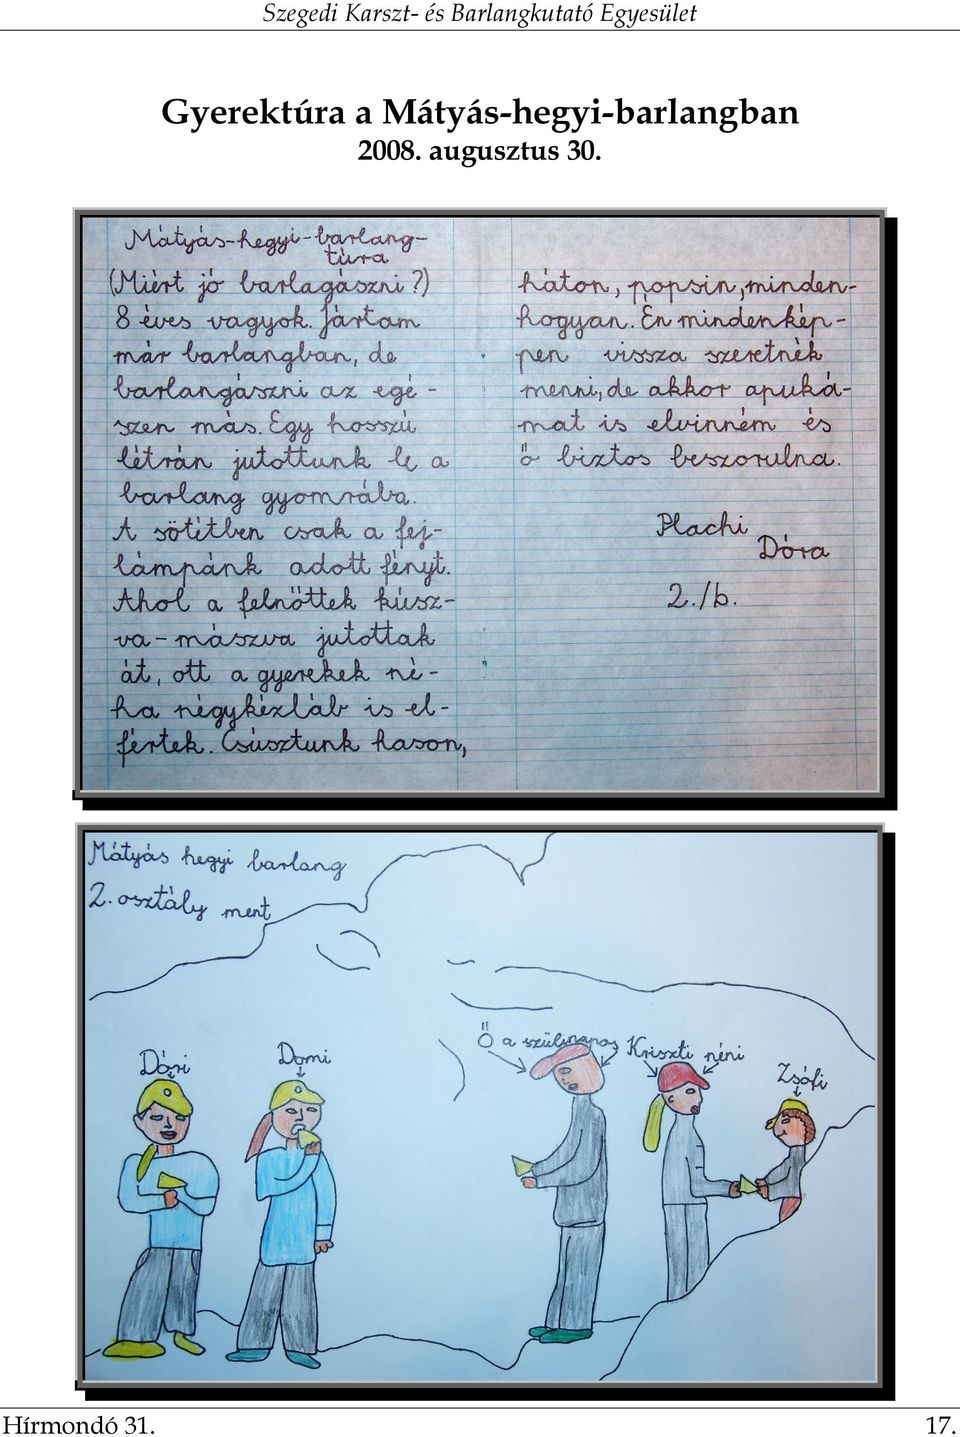 Szegedi Karszt- és Barlangkutató Egyesület
Gyerektúra a Mátyás-hegyi-barlangban
2008. augusztus 30.
Mátyás-hegyi-barlang-
túra
(Miért jó barlagászni?)
8 éves vagyok. Jártam
már barlangban, de
barlangászni az egé-
szen más. Egy hosszú
létrán jutottunk le a
barlang gyomrába.
A sötétben csak a fej-
lámpánk adott fényt.
Ahol a felnőttek kúsz-
va-mászva jutottak
át, ott a gyerekek né-
ha négykézláb is el-
fértek. Csúsztunk hason,
háton, popsin, minden-
hogyan. Én mindenkép-
pen vissza szeretnék
menni, de akkor apuká-
mat is elvinném és
ő biztos beszorulna.
Plachi
Dóra
2./b.
Mátyás hegyi barlang
2. osztály ment
Dóri
Domi
Ő a szülinapos
Kriszti néni
Zsófi
Hírmondó 31.
17.